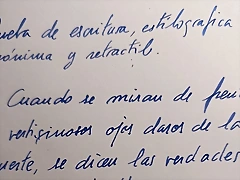 ueba de escritura, estilografica
ónima y retractil.
Cuando se miran de fren
vertiginosos ojos claros de la
uerte, se dicen las verdades